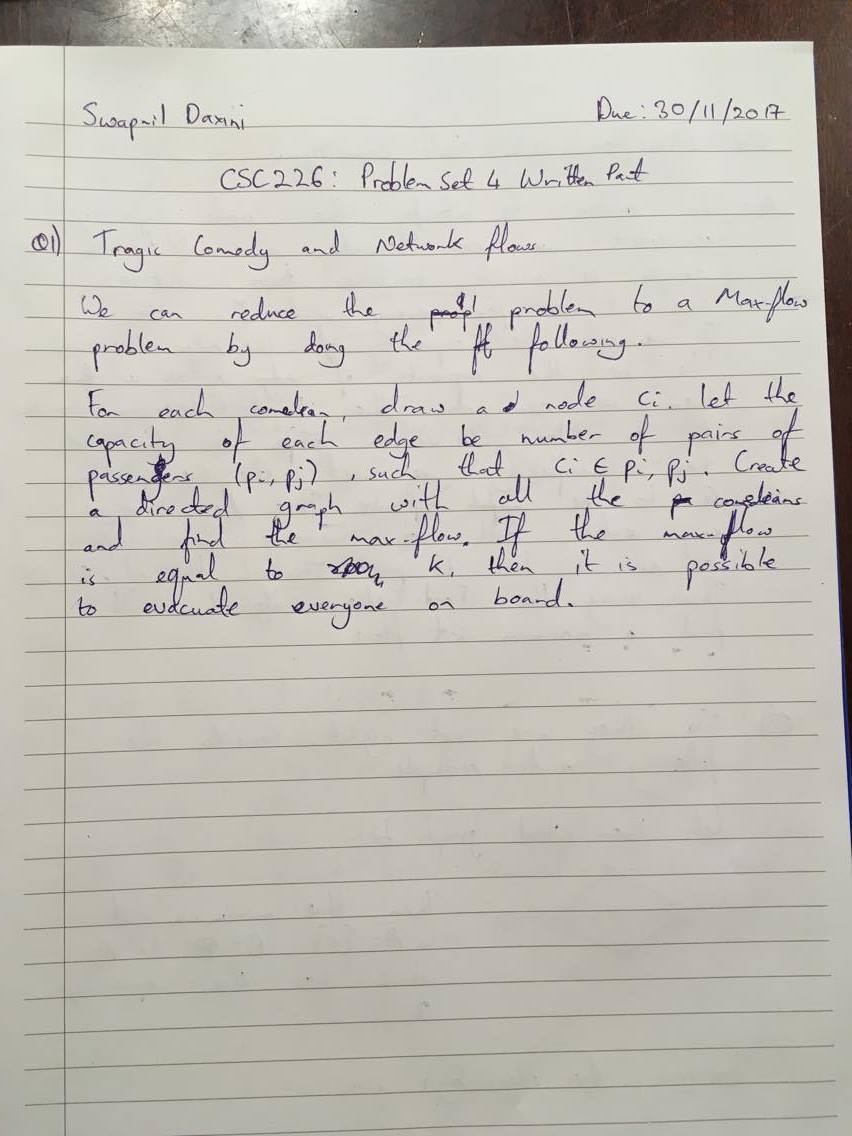 Swapnil Daxini Due: 30/11/2017
CSC226: Problem Set 4 Written Part
Q1) Tragic Comedy and Network flows
We can reduce the problem to a Max-flow
problem by doing the following.
For each comedean, draw a node Ci. let the
capacity of each edge be number of pairs of
passengers (pi, pj), such that Ci ∈ Pi, Pj. Create
a directed graph with all the comedeans
and find the max-flow. If the max-flow
is equal to k, then it is possible
to evacuate everyone on board.